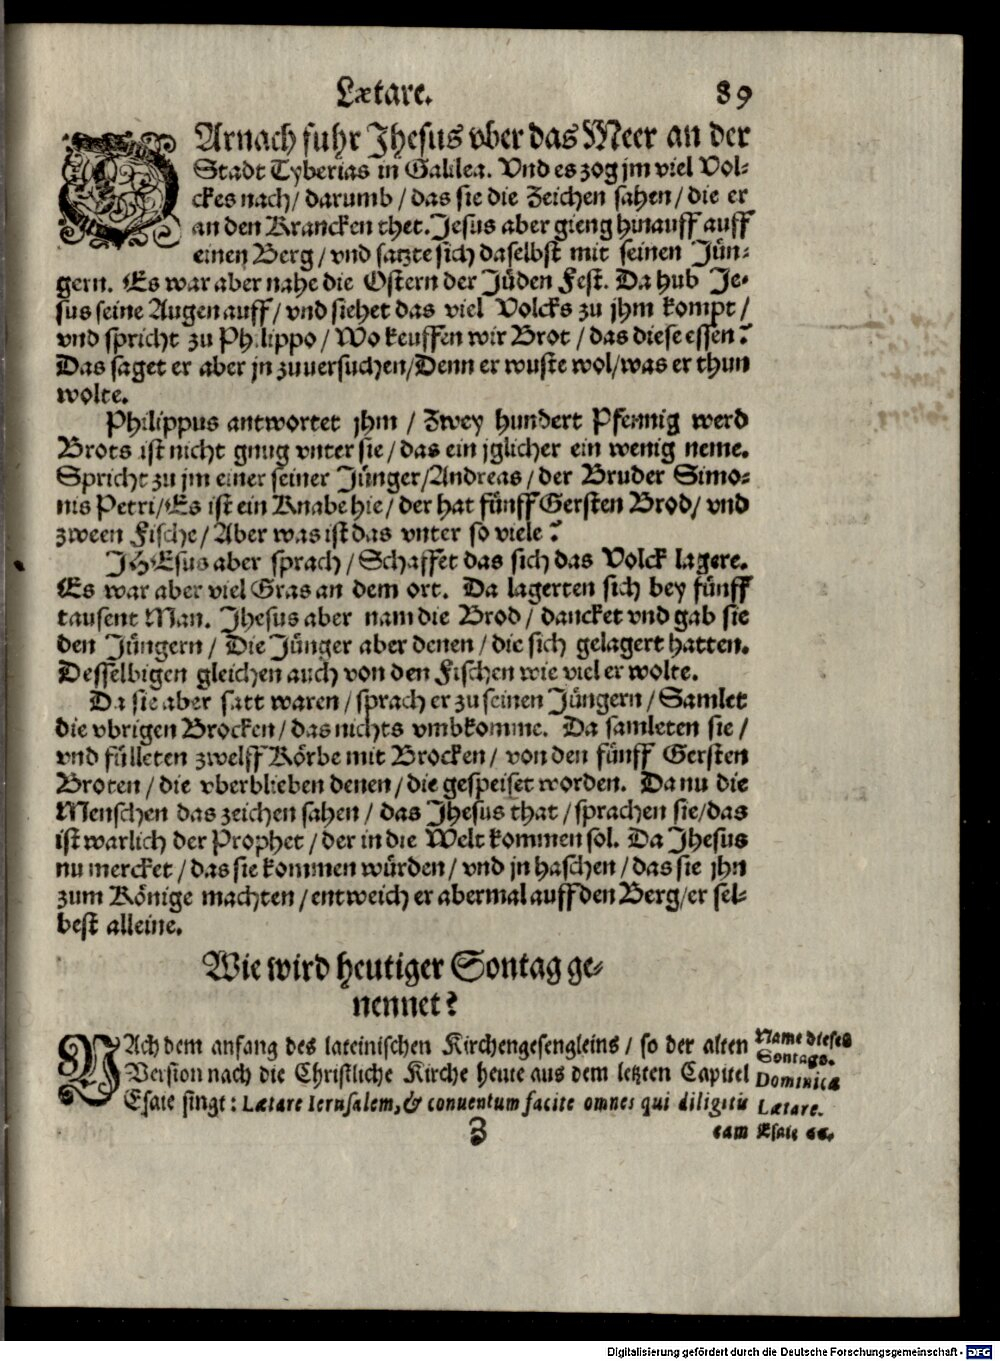 Lætare. 89
DArnach fuhr Jhesus vber das Meer an der
Stadt Tyberias in Galilea. Vnd es zog jm viel Vol-
ckes nach / darumb / das sie die Zeichen sahen / die er
an den Krancken thet. Jesus aber gieng hinauff auff
einen Berg / vnd satzte sich daselbst mit seinen Jün-
gern. Es war aber nahe die Ostern der Jüden Fest. Da hub Je-
sus seine Augen auff / vnd siehet das viel Volcks zu jhm kompt /
vnd spricht zu Philippo / Wo keuffen wir Brot / das diese essen?
Das saget er aber jn zuuersuchen / Denn er wuste wol / was er thun
wolte.
Philippus antwortet jhm / Zwey hundert Pfennig werd
Brots ist nicht gnug vnter sie / das ein jglicher ein wenig neme.
Spricht zu jm einer seiner Jünger / Andreas / der Bruder Simo-
nis Petri / Es ist ein Knabe hie / der hat fünff Gersten Brod / vnd
zween Fische / Aber was ist das vnter so viele?
JHEsus aber sprach / Schaffet das sich das Volck lagere.
Es war aber viel Gras an dem ort. Da lagerten sich bey fünff
tausent Man. Jhesus aber nam die Brod / dancket vnd gab sie
den Jüngern / Die Jünger aber denen / die sich gelagert hatten.
Desselbigen gleichen auch von den Fischen wie viel er wolte.
Da sie aber satt waren / sprach er zu seinen Jüngern / Samlet
die vbrigen Brocken / das nichts vmbkomme. Da samleten sie /
vnd fülleten zwelff Körbe mit Brocken / von den fünff Gersten
Broten / die vberblieben denen / die gespeiset worden. Da nu die
Menschen das zeichen sahen / das Jhesus that / sprachen sie / das
ist warlich der Prophet / der in die Welt kommen sol. Da Jhesus
nu mercket / das sie kommen würden / vnd jn haschen / das sie jhn
zum Könige machten / entweich er abermal auff den Berg / er sel-
best alleine.
Wie wird heutiger Sontag ge-
nennet?
NAch dem anfang des lateinischen Kirchengesengleins / so der alten
Version nach die Christliche Kirche heute aus dem letzten Capitel
Esaie singt: Lætare Ierusalem, & conuentum facite omnes qui diligitis
Z eam
Name dieses
Sontags.
Dominica
Lætare.
Esaie 66.
Digitalisierung gefördert durch die Deutsche Forschungsgemeinschaft - DFG